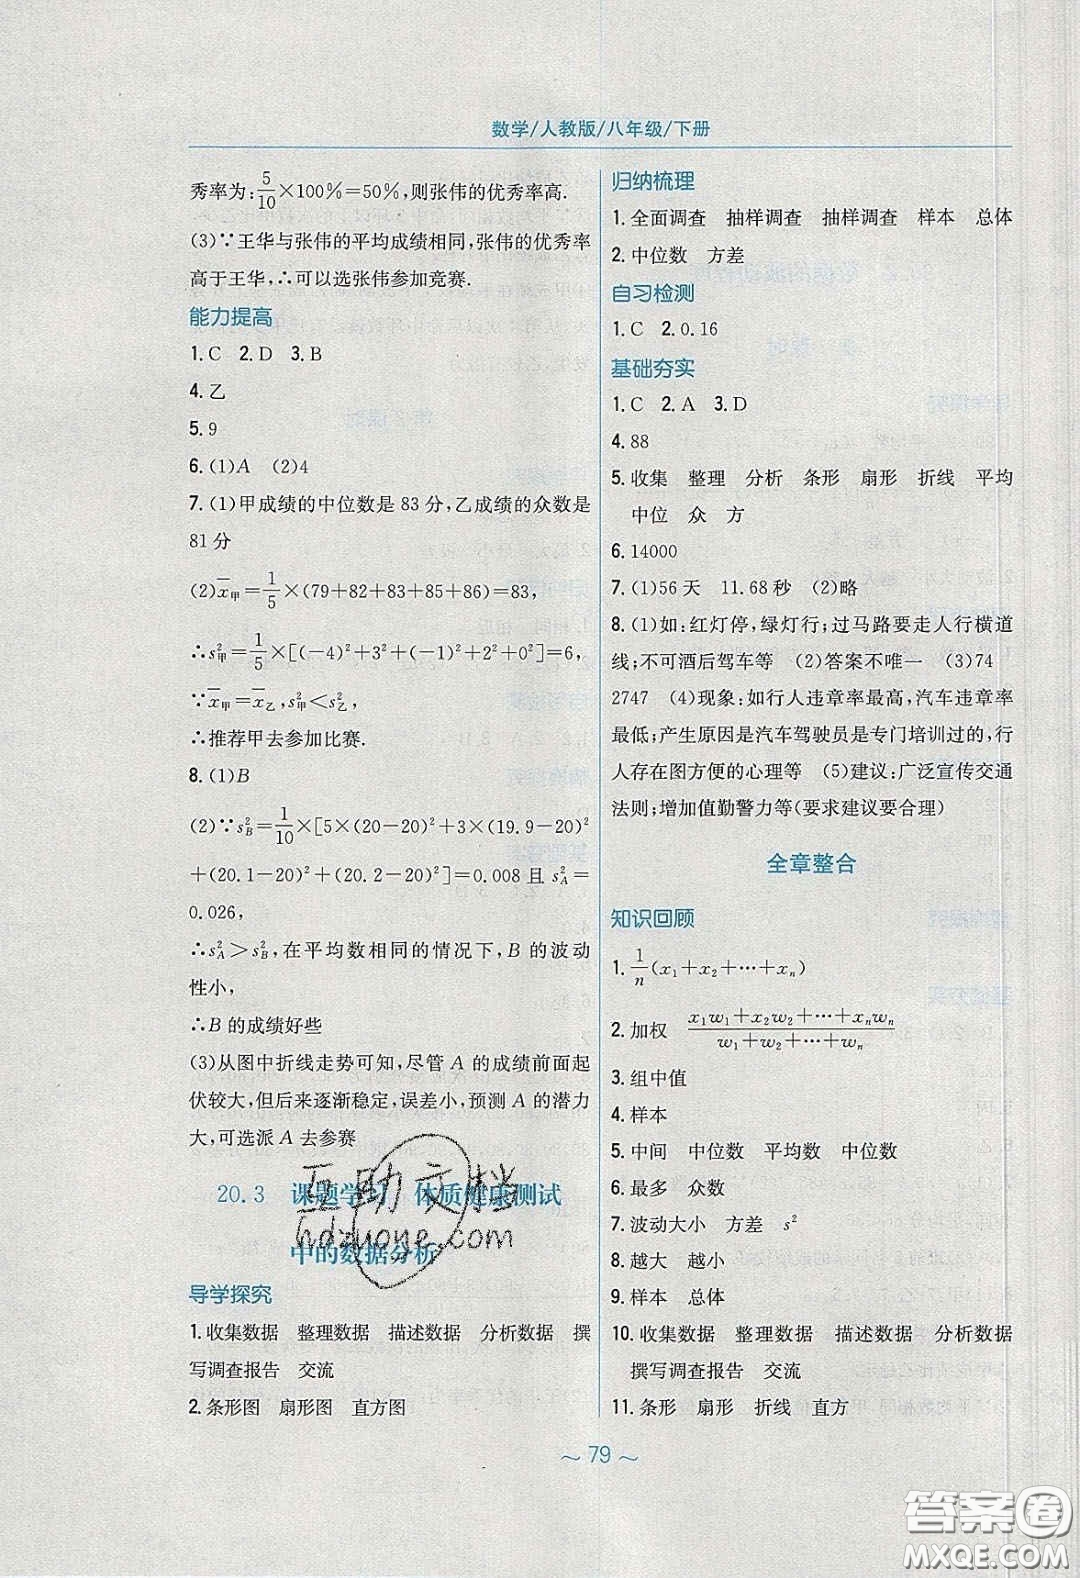 数学/人教版/八年级/下册
秀率为:5/10×100%=50%,则张伟的优秀率高.
(3)∵王华与张伟的平均成绩相同,张伟的优秀率
高于王华,∴可以选张伟参加竞赛.
能力提高
1.C 2.D 3.B
4.乙
5.9
6.(1)A (2)4
7.(1)甲成绩的中位数是 83 分,乙成绩的众数是
81 分
(2)x̅甲=1/5×(79+82+83+85+86)=83,
∴s²甲=1/5×[(-4)²+3²+(-1)²+2²+0²]=6,
∵x̅甲=x̅乙,s²甲<s²乙,
∴推荐甲去参加比赛.
8.(1)B
(2)∵s²B=1/10×[5×(20-20)²+3×(19.9-20)²
+(20.1-20)²+(20.2-20)²]=0.008 且 s²A=
0.026,
∴s²A>s²B,在平均数相同的情况下,B 的波动
性小,
∴B 的成绩好些
(3)从图中折线走势可知,尽管 A 的成绩前面起
伏较大,但后来逐渐稳定,误差小,预测 A 的潜力
大,可选派 A 去参赛
20.3 课题学习 体质健康测试
中的数据分析
导学探究
1.收集数据 整理数据 描述数据 分析数据 撰
写调查报告 交流
2.条形图 扇形图 直方图
归纳梳理
1.全面调查 抽样调查 抽样调查 样本 总体
2.中位数 方差
自习检测
1.C 2.0.16
基础夯实
1.C 2.A 3.D
4.88
5.收集 整理 分析 条形 扇形 折线 平均
中位 众 方
6.14000
7.(1)56 天 11.68 秒 (2)略
8.(1)如:红灯停,绿灯行;过马路要走人行横道
线;不可酒后驾车等 (2)答案不唯一 (3)74
2747 (4)现象:如行人违章率最高,汽车违章率
最低;产生原因是汽车驾驶员是专门培训过的,行
人存在图方便的心理等 (5)建议:广泛宣传交通
法则;增加值勤警力等(要求建议要合理)
全章整合
知识回顾
1.1/n(x₁+x₂+⋯+xₙ)
2.加权 (x₁w₁+x₂w₂+⋯+xₙwₙ)/(w₁+w₂+⋯+wₙ)
3.组中值
4.样本
5.中间 中位数 平均数 中位数
6.最多 众数
7.波动大小 方差 s²
8.越大 越小
9.样本 总体
10.收集数据 整理数据 描述数据 分析数据
撰写调查报告 交流
11.条形 扇形 折线 直方
~ 79 ~
互助文档
hdzuone.com
答案圈
MXQE.COM